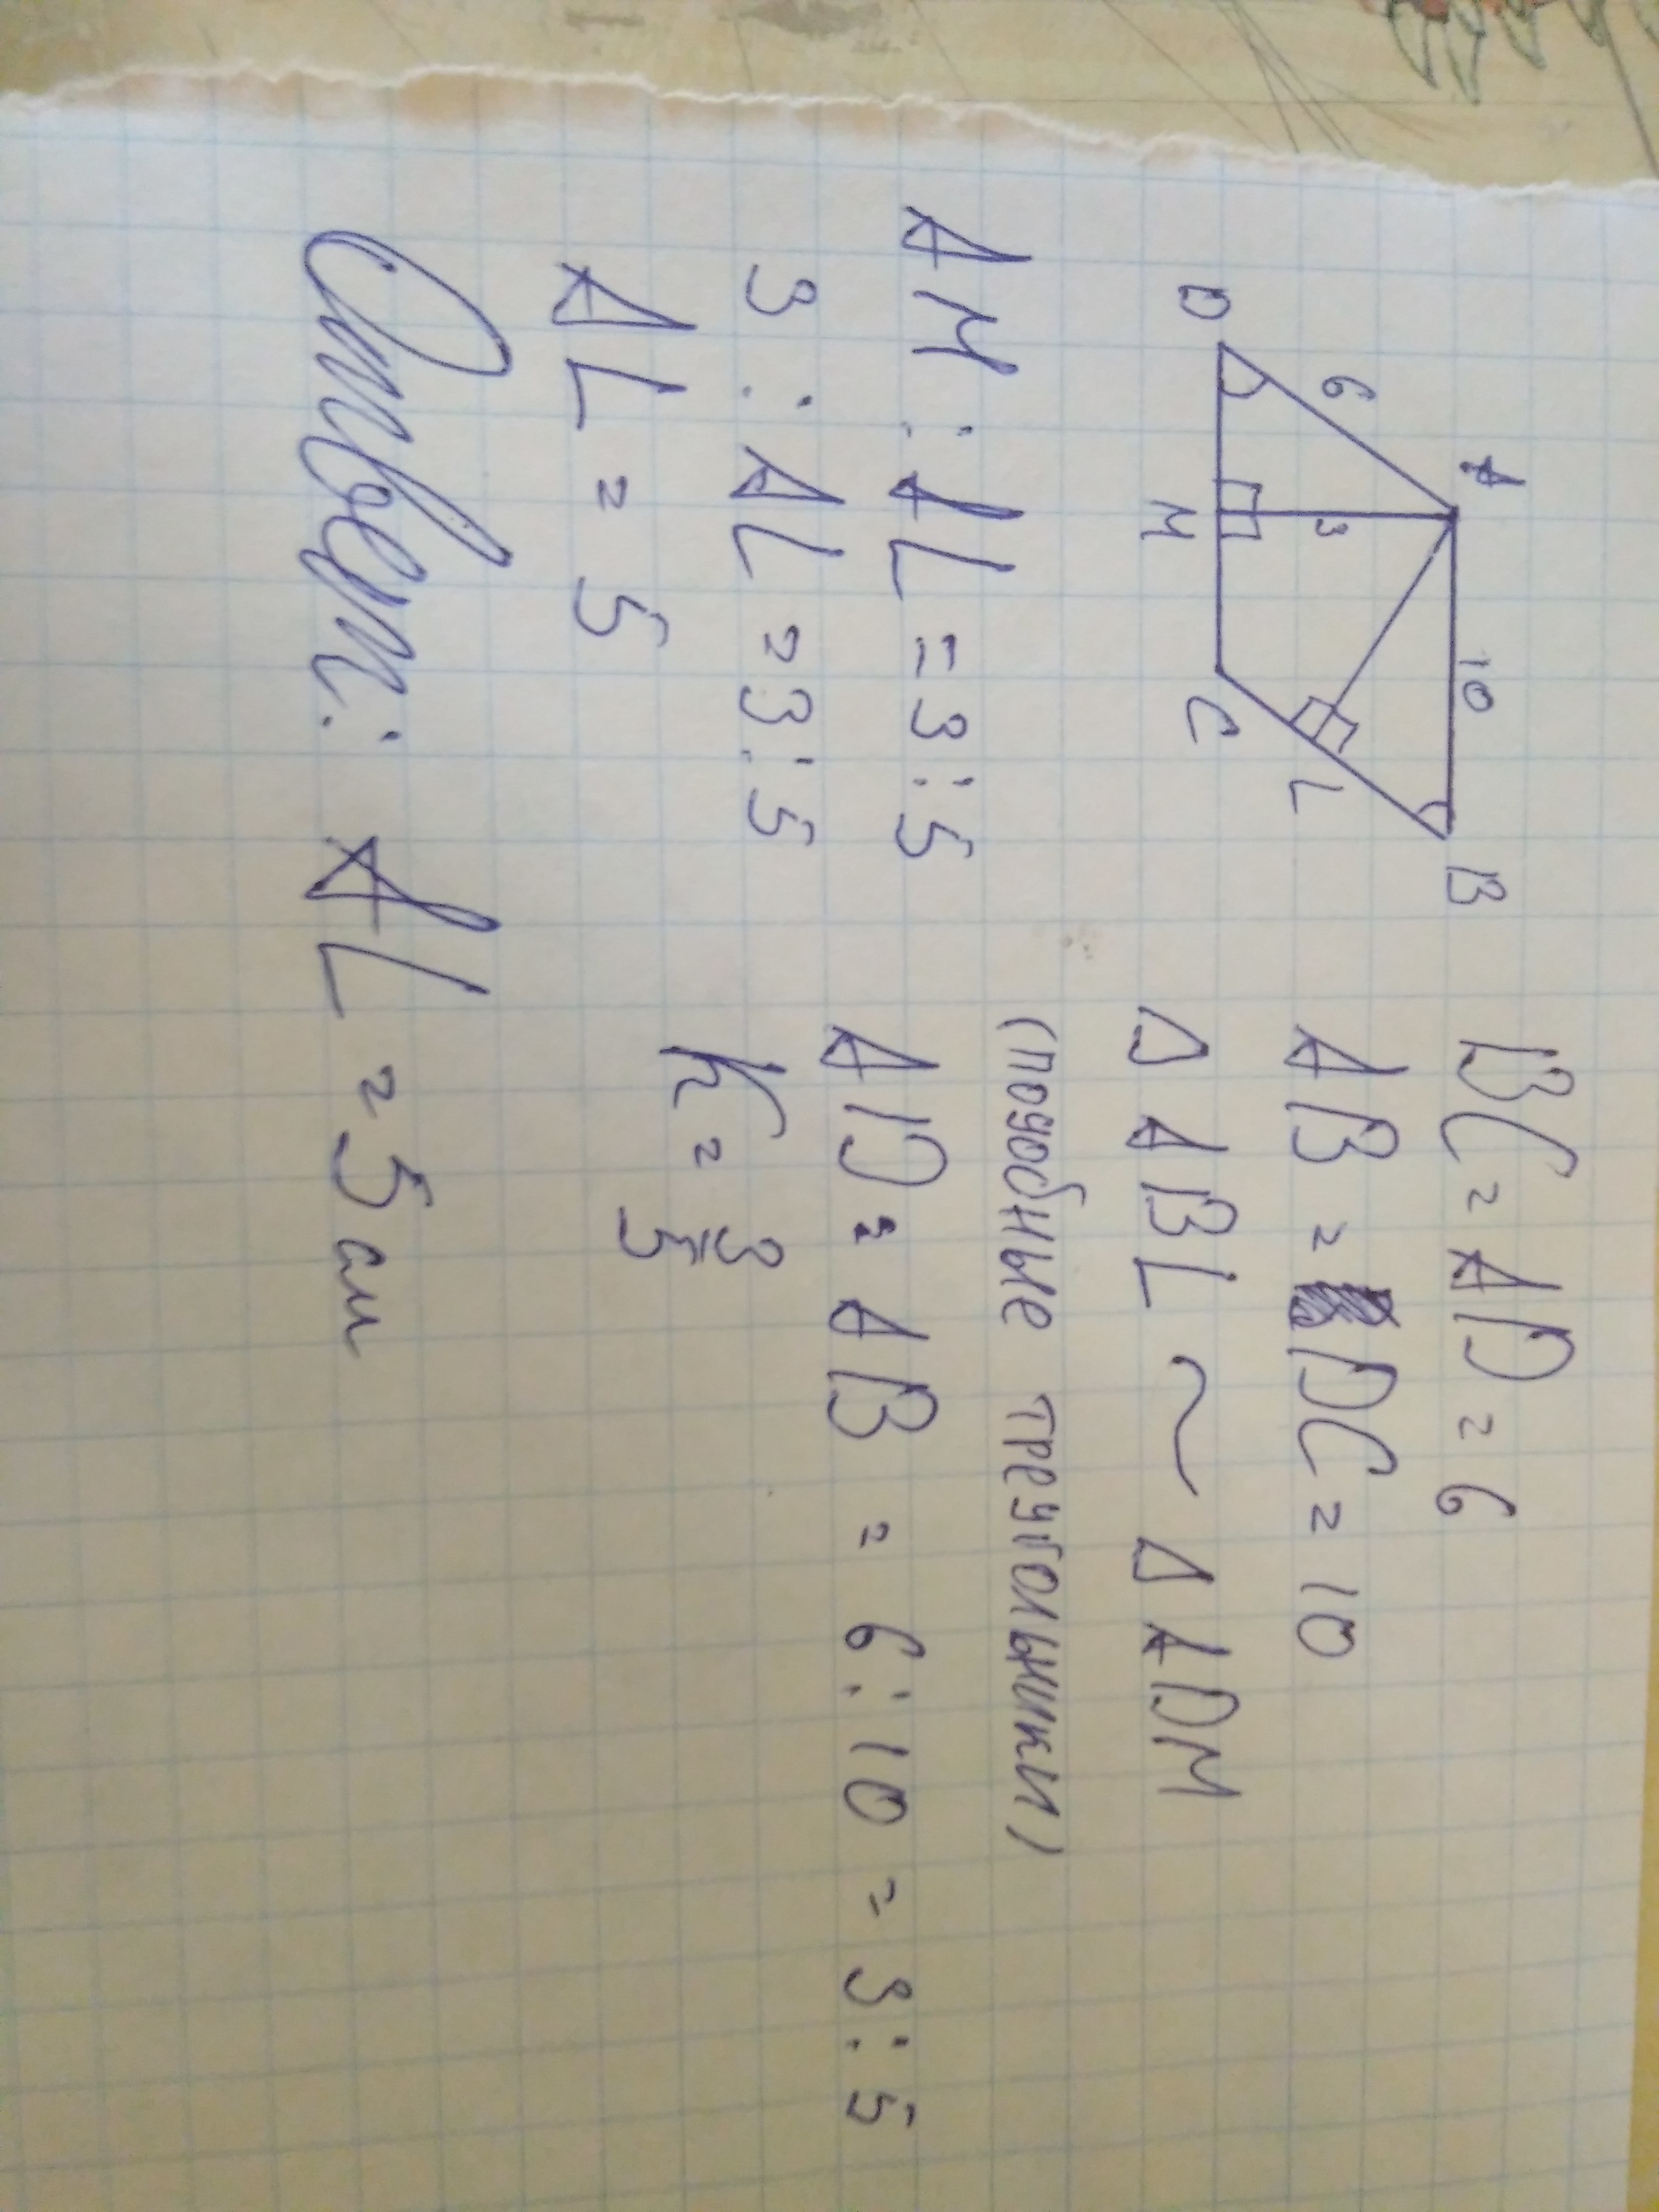 A
10
B
6
3
D
M
C
L
BC = AD = 6
AB = DC = 10
Δ ABL ~ Δ ADM
(подобные треугольники)
AD : AB = 6:10 = 3:5
k = 3/5
AM : AL = 3:5
3 : AL = 3:5
AL = 5
Ответ: AL = 5 см